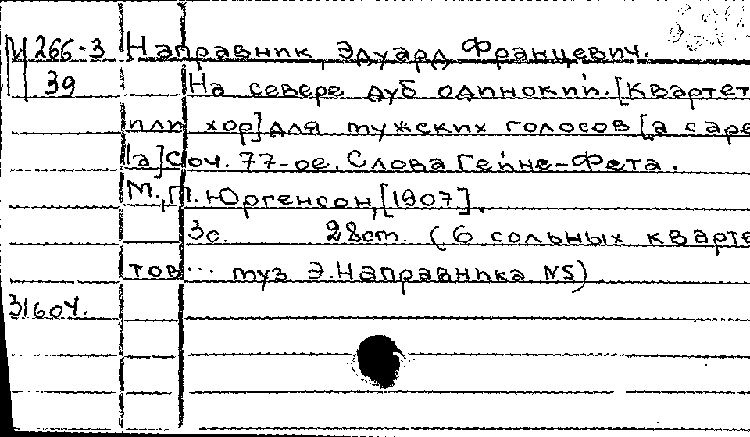 Ц 266-3 Направник, Эдуард Францевич.
39 На севере дуб одинокий. [Квартет
или хор] для мужских голосов [a cape
la] Соч. 77-ое. Слова Гейне-Фета.
М., П. Юргенсон, [1907].
3с. 28см. (6 сольных кварте
тов... муз Э. Направника №5)
31604.